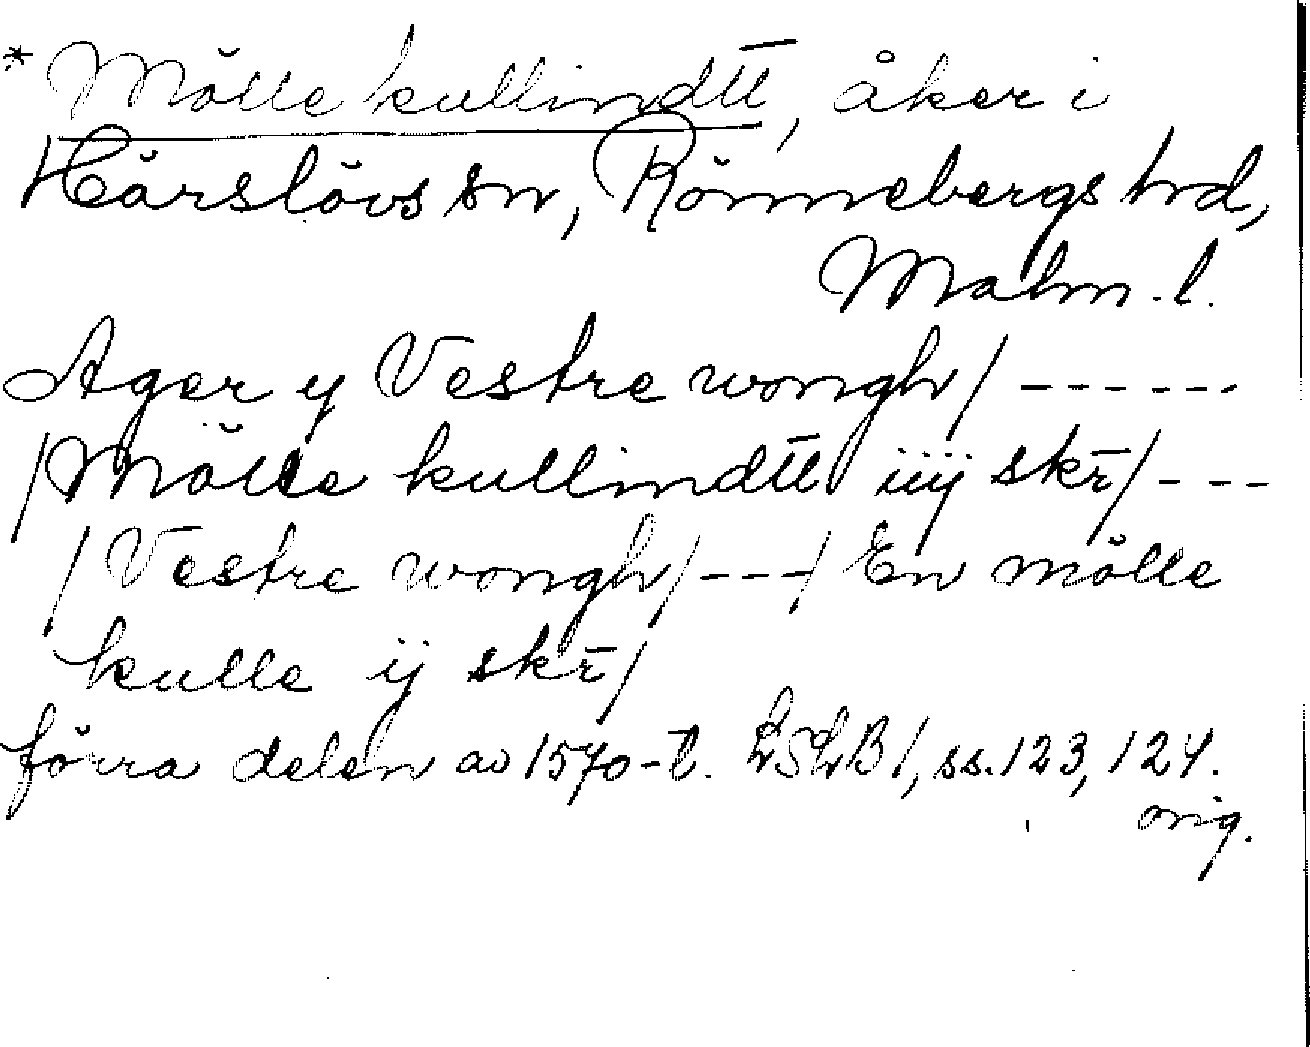 * Mölle kullindtt̅, åker i
Härslövs sn, Rönnebergs hd,
Malm. l.
Ager y Vestre wongh/ ------
/Mölle kullindtt̅ iiij skr̅/---
/Vestre wongh/---/En mölle
kulle ij skr̅/
förra delen av 1570-t. LSLB 1, ss. 123, 124.
orig.